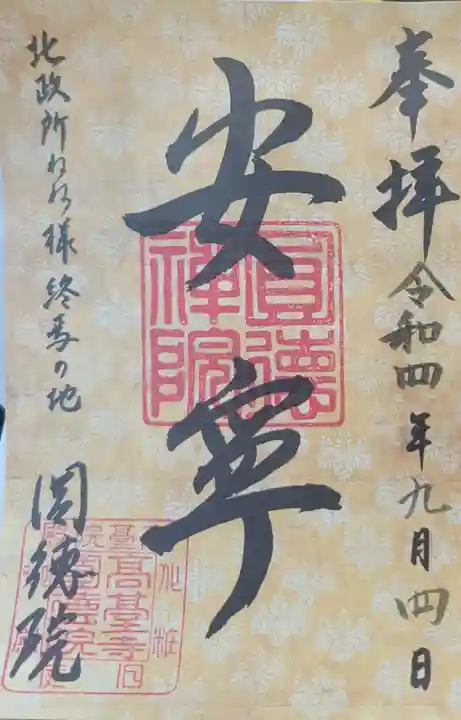 奉拝
令和四年九月四日
安寧
圓徳禅院
北政所ねね様終焉の地
圓徳院
高臺寺